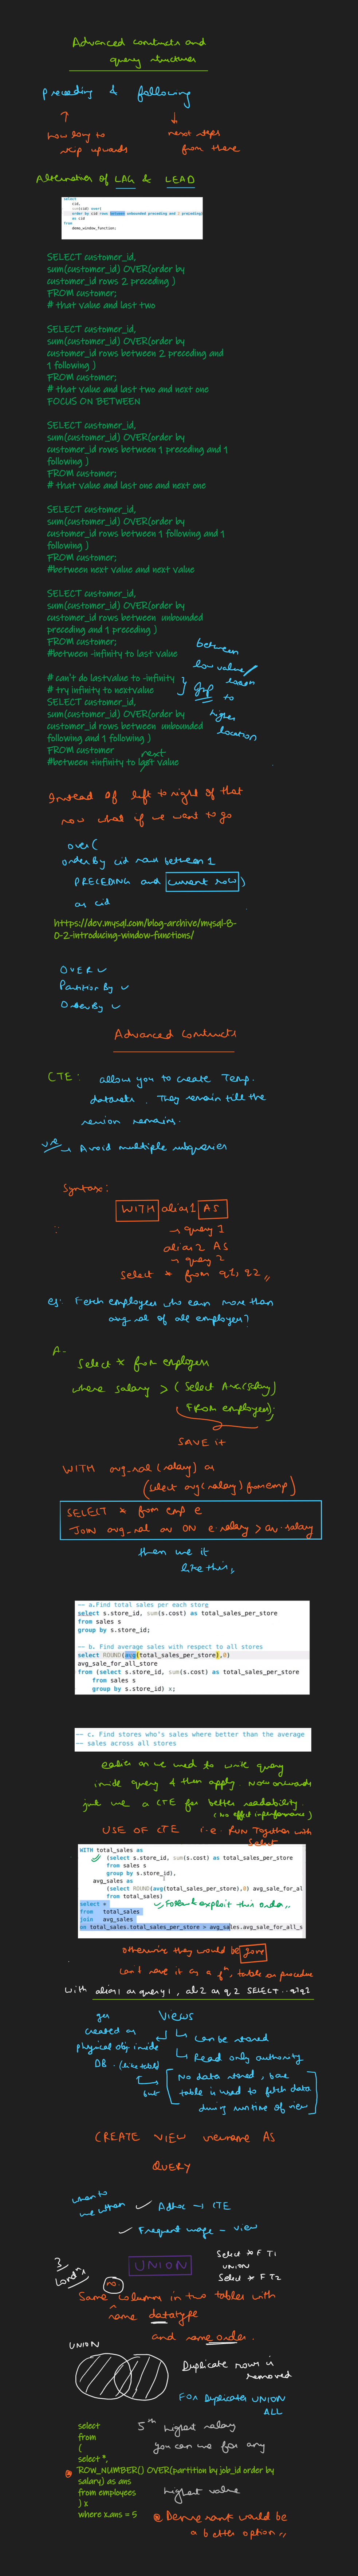 Advanced constructs and
query structures
preceding & following
how long to
skip upwards
next steps
from there
Alternative of LAG & LEAD
select
cid,
sum(cid) over(
order by cid rows between unbounded preceding and 1 preceding)
as cid
from
demo_window_function;
SELECT customer_id,
sum(customer_id) OVER(order by
customer_id rows 2 preceding )
FROM customer;
# that value and last two
SELECT customer_id,
sum(customer_id) OVER(order by
customer_id rows between 2 preceding and
1 following )
FROM customer;
# that value and last two and next one
FOCUS ON BETWEEN
SELECT customer_id,
sum(customer_id) OVER(order by
customer_id rows between 1 preceding and 1
following )
FROM customer;
# that value and last one and next one
SELECT customer_id,
sum(customer_id) OVER(order by
customer_id rows between 1 following and 1
following )
FROM customer;
#between next value and next value
SELECT customer_id,
sum(customer_id) OVER(order by
customer_id rows between unbounded
preceding and 1 preceding )
FROM customer;
#between -infinity to last value
# can't do lastvalue to -infinity
# try infinity to nextvalue
SELECT customer_id,
sum(customer_id) OVER(order by
customer_id rows between unbounded
following and 1 following )
FROM customer
next
#between +infinity to last value
between
low value/
location
to
higher
location
Instead of left to right of that
row what if we want to go
over(
order By cid rows between 1
PRECEDING and current row)
as cid
https://dev.mysql.com/blog-archive/mysql-8-
0-2-introducing-window-functions/
OVER ✓
Partition By ✓
Order By ✓
Advanced Constructs
CTE: allow you to create Temp.
datasets. They remain till the
session remains.
use → Avoid multiple subqueries
Syntax:
WITH alias1 AS
→ query 1
alias 2 AS
→ query 2
Select * from q1, q2
eg: Fetch employees who earn more than
avg sal of all employees?
A-
Select * from employees
where salary > (Select Avg(salary)
FROM employees);
SAVE it
WITH avg_sal (salary) as
(select avg(salary) from emp)
SELECT * from emp e
JOIN avg_sal av ON e.salary > av.salary
then use it
like this
-- a.Find total sales per each storg
select s.store_id, sum(s.cost) as total_sales_per_store
from sales s
group by s.store_id;
-- b. Find average sales with respect to all stores
select ROUND(avg(total_sales_per_store),0)
avg_sale_for_all_store
from (select s.store_id, sum(s.cost) as total_sales_per_store
from sales s
group by s.store_id) x;
-- c. Find stores who's sales where better than the average
-- sales across all stores
earlier on we used to write query
inside query & then apply. Now onwards
just use a CTE for better readability.
(no effect in performance)
USE OF CTE i.e. RUN Together with
Select
WITH total_sales as
(select s.store_id, sum(s.cost) as total_sales_per_store
from sales s
group by s.store_id),
avg_sales as
(select ROUND(avg(total_sales_per_store),0) avg_sale_for_al
from total_sales)
select *
from total_sales
join avg_sales
on total_sales.total_sales_per_store > avg_sales.avg_sale_for_all_s
otherwise they would be gone
can't save it as a fn, table or procedure
With alias1 as query1, al2 as q2 SELECT..q1q2
Views
gets
created as
physical obj inside
DB. (like table)
but
Can be stored
Read only authority
No data stored, base
table is used to fetch data
during runtime of view
CREATE VIEW viewname AS
QUERY
when to
use when
✓ Adhoc → CTE
✓ Frequent usage - view
UNION
Select * F T1
UNION
Select * F T2
3
Cond's
no.
Same columns in two tables with
same datatype
and same order.
UNION
Duplicate rows is
removed
FOR Duplicates UNION
ALL
select
from
(
select *,
ROW_NUMBER() OVER(partition by job_id order by
salary) as ans
from employees
) x
where x.ans = 5
5th highest salary
you can use for any
highest value
@ Dense rank would be
a better option